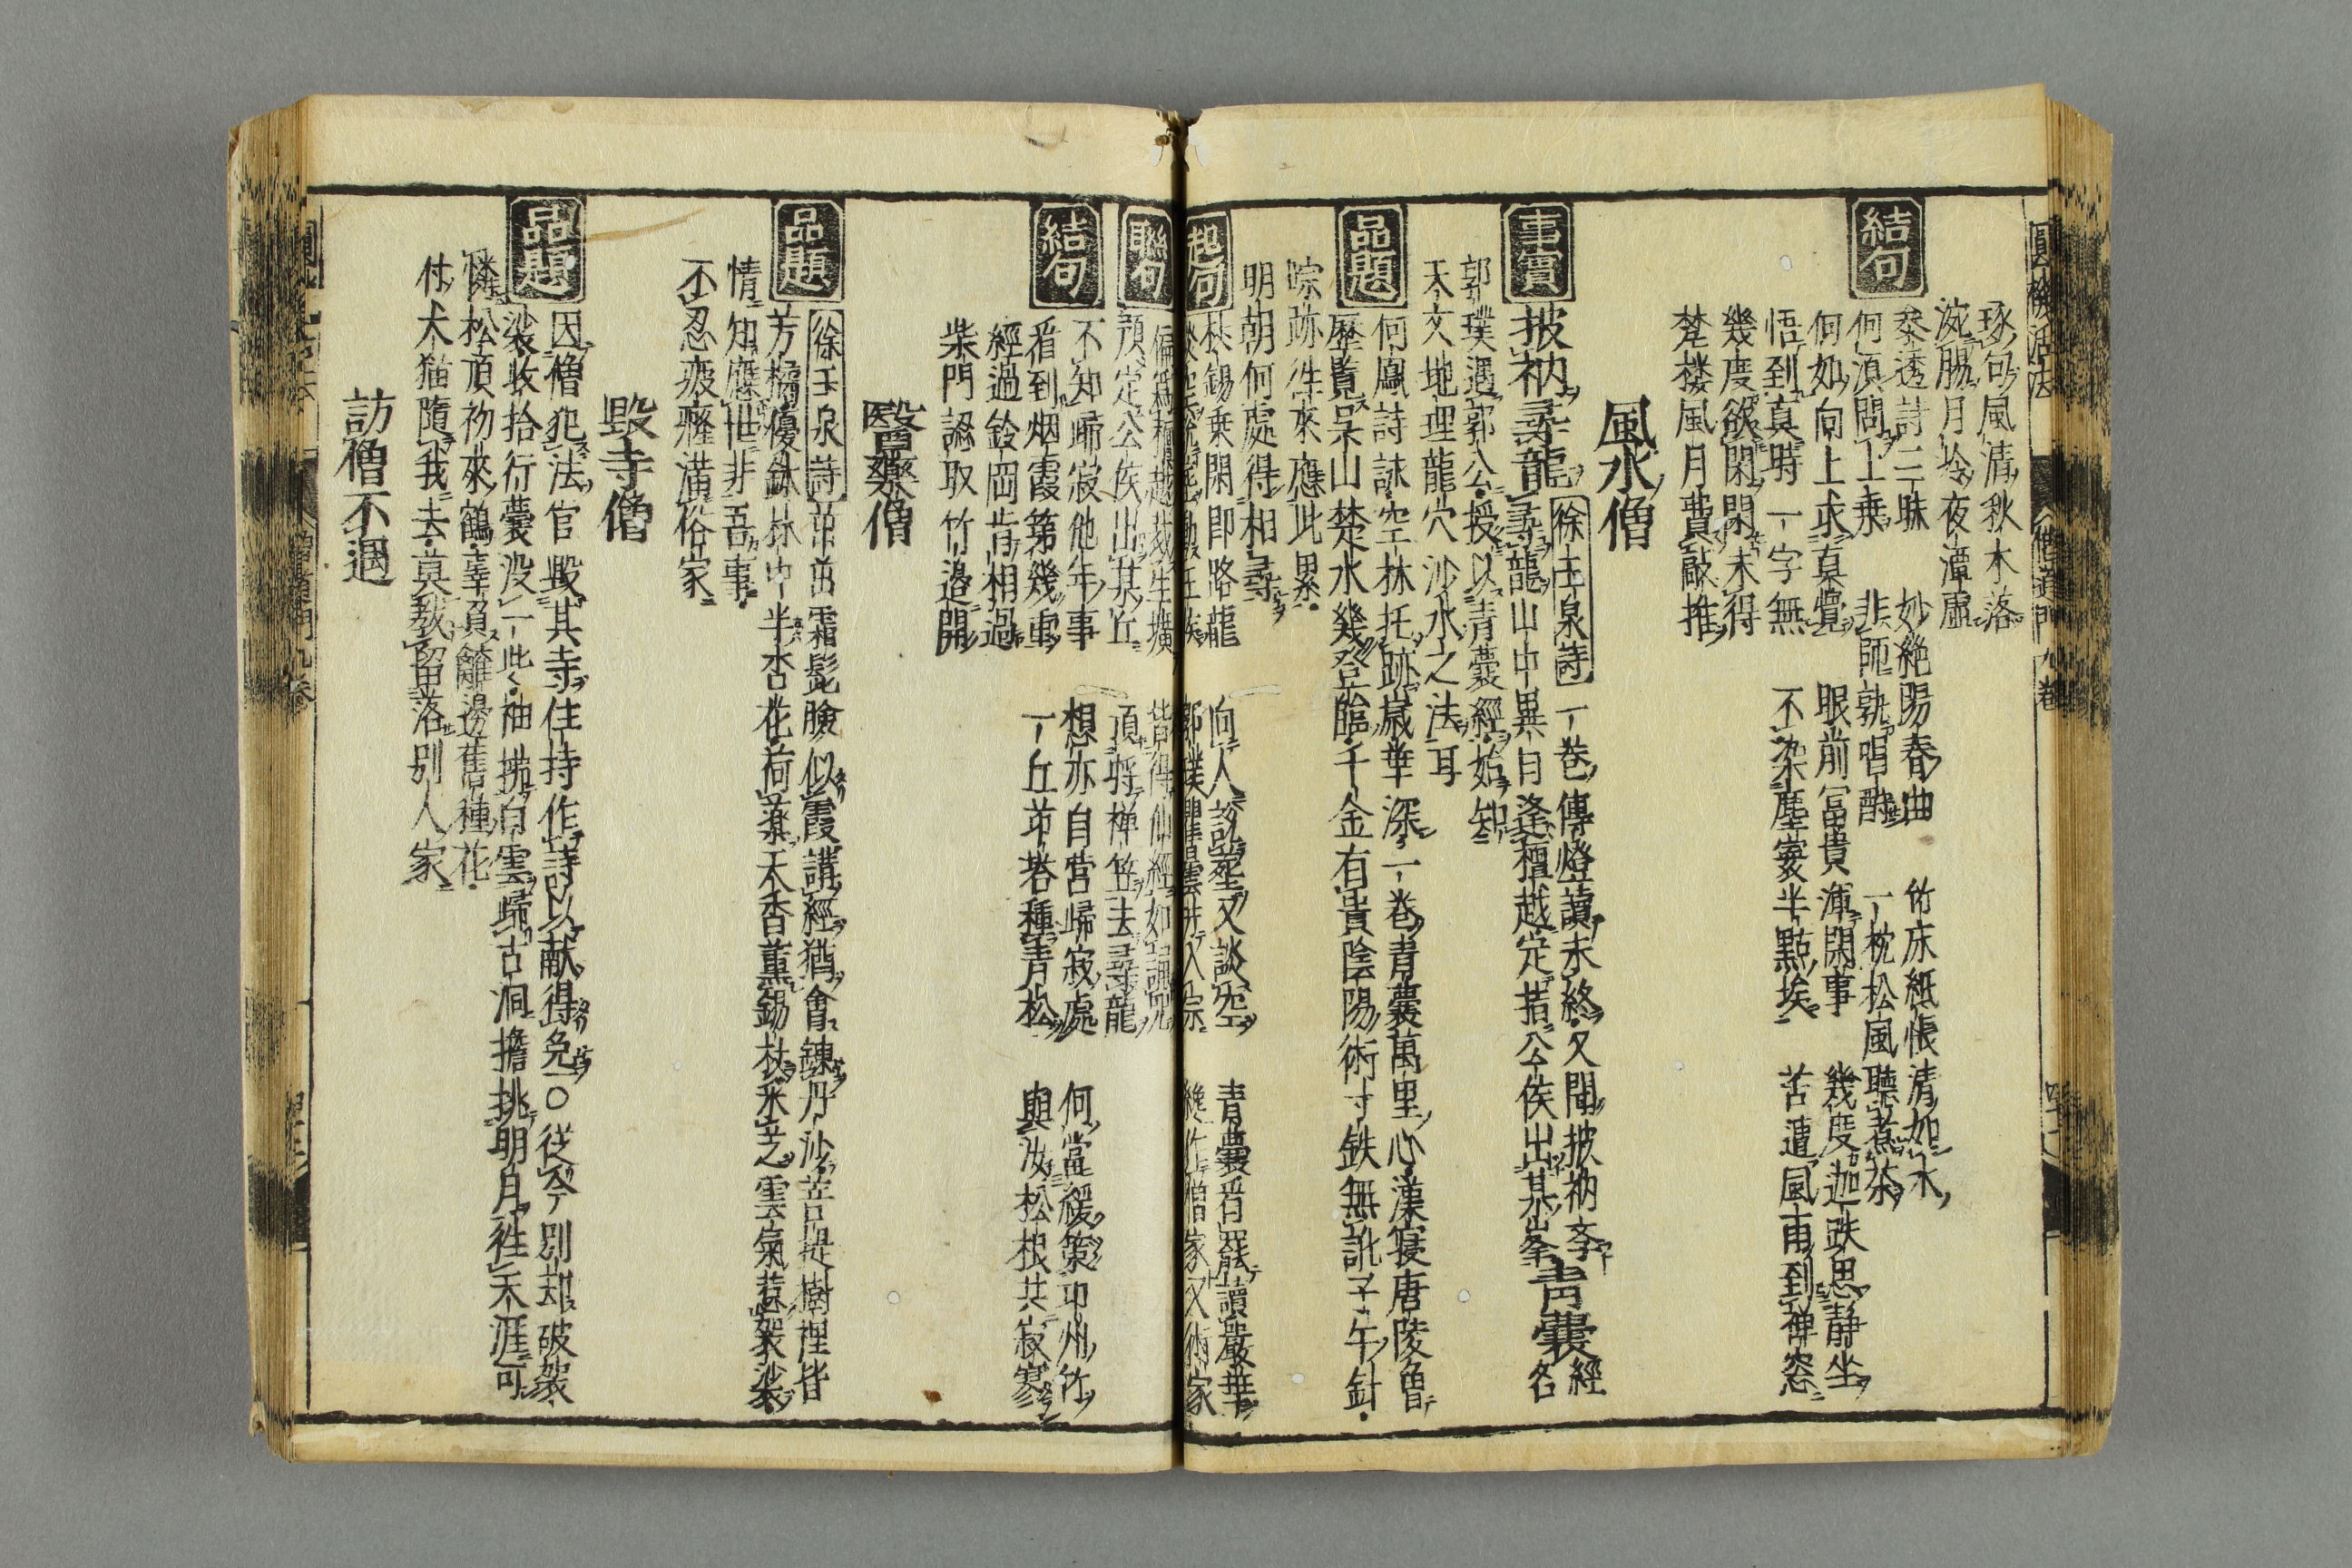 琢句風清秋木落
漉腸月冷夜潭虛
結句
參透詩三昧 妙絶陽春曲 竹床紙帳清如水
何須問上乘 非師孰唱酧 一枕松風聽煮茶
何如向上求真覺 眼前富貴渾閑事 幾度迦趺思静坐
悟到真時一字無 不染塵寰半點埃 苦遭風雨到禪窓
幾度欲閑閑未得
楚楼風月費敲推
風水僧
事實
披衲尋龍
徐玉泉詩
一巻傳燈讀未終又聞披衲
尋龍山中異日逢檀越定指公侯出某峯
青囊
經名
郭璞遇郭公授以青囊經始知
天文地理龍穴沙水之法耳
品題
何鳳詩詠空林托跡歳華深一巻青囊萬里心漢寝唐陵曾
歴覧呉山楚水幾登臨千金有貴陰陽術寸鉄無訛子午針
踪跡徃來應此累
明朝何處得相尋
起句
杖錫乗閑即路龍 向人説罷又談空 青囊看罷讀嚴華
聯句
預定公侯出某丘 頂將禅笠去尋龍
結句
不知歸寂他年事 想亦自営歸寂處 何當緩策卭州竹
看到烟霞第幾重 一丘茆塔種青松 與汝松根共寂寥
經過鈴岡肯相過
柴門認取竹邉開
醫藥僧
品題
徐玉泉詩
茁茁霜髭臉似霞講經猶會錬丹沙菩提樹裡皆
芳橘優鉢林中半杏花荷葉天香薫錫杖采芝雲氣惹袈裟
情知應世非吾事
不忍疲癃满俗家
毀寺僧
品題
因僧犯法官毀其寺住持作詩以献得免○従今別却破袈
裟收拾行囊没一此袖拂白雲歸古洞擔挑明月徃天涯可
憐松頂初來鶴辜負籬邊舊種花
付犬猫隨我去莫教留落別人家
訪僧不遇